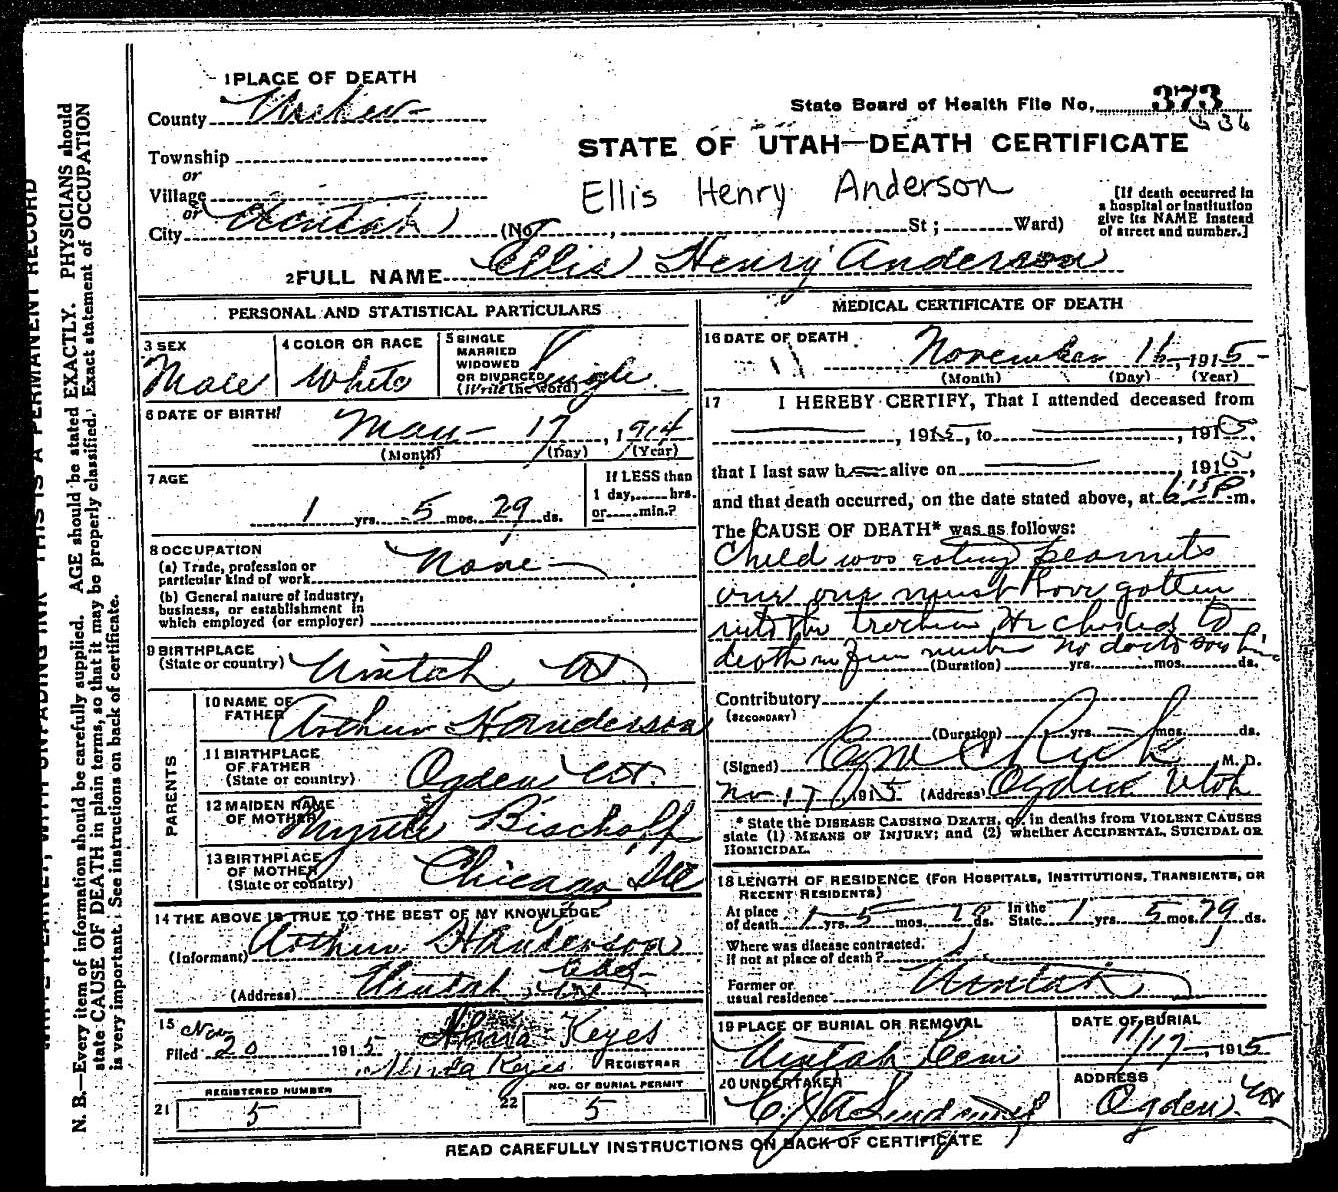 1 PLACE OF DEATH
State Board of Health File No. 373
636
County Weber
STATE OF UTAH—DEATH CERTIFICATE
Township
or
Village
or
City Uintah
Ellis Henry Anderson
(No. , St; Ward)
[If death occurred in
a hospital or institution
give its NAME instead
of street and number.]
2 FULL NAME Ellis Henry Anderson
PERSONAL AND STATISTICAL PARTICULARS
3 SEX
Male
4 COLOR OR RACE
White
5 SINGLE
MARRIED
WIDOWED
OR DIVORCED
(Write the word)
Single
6 DATE OF BIRTH
May 17, 1914
(Month) (Day) (Year)
7 AGE
1 yrs. 5 mos. 29 ds.
If LESS than
1 day, hrs.
or min.?
8 OCCUPATION
(a) Trade, profession or
particular kind of work
None
(b) General nature of industry,
business, or establishment in
which employed (or employer)
9 BIRTHPLACE
(State or country) Uintah Ut
PARENTS
10 NAME OF
FATHER
Arthur H Anderson
11 BIRTHPLACE
OF FATHER
(State or country)
Ogden Ut.
12 MAIDEN NAME
OF MOTHER
Myrtle Bischoff
13 BIRTHPLACE
OF MOTHER
(State or country)
Chicago Ill
14 THE ABOVE IS TRUE TO THE BEST OF MY KNOWLEDGE
(Informant) Arthur H Anderson
(Address) Uintah
15
Filed Nov 20 1915
Keyes
Keyes REGISTRAR
REGISTERED NUMBER
21 5
NO. OF BURIAL PERMIT
22 5
MEDICAL CERTIFICATE OF DEATH
16 DATE OF DEATH
November 16, 1915
(Month) (Day) (Year)
17 I HEREBY CERTIFY, That I attended deceased from
, 1915, to , 191
that I last saw h alive on , 191
and that death occurred, on the date stated above, at 6 15 P m.
The CAUSE OF DEATH* was as follows:
Child was eating peanuts
one must have gotten
into the trachea He choked to
death in few minutes No doctor saw him
(Duration) yrs. mos. ds.
Contributory
(SECONDARY)
(Duration) yrs. mos. ds.
(Signed) M. D.
Nov 17 1915 (Address) Ogden Utah
* State the DISEASE CAUSING DEATH, or, in deaths from VIOLENT CAUSES
state (1) MEANS OF INJURY; and (2) whether ACCIDENTAL, SUICIDAL OR
HOMICIDAL.
18 LENGTH OF RESIDENCE (FOR HOSPITALS, INSTITUTIONS, TRANSIENTS, OR
RECENT RESIDENTS)
At place
of death 1 yrs. 5 mos. 29 ds.
In the
State 1 yrs. 5 mos. 29 ds.
Where was disease contracted.
if not at place of death?
Former or
usual residence Uintah
19 PLACE OF BURIAL OR REMOVAL
Uintah Cem
DATE OF BURIAL
11/17, 1915
20 UNDERTAKER
ADDRESS
Ogden Ut
READ CAREFULLY INSTRUCTIONS ON BACK OF CERTIFICATE
WRITE PLAINLY, WITH UNFADING INK—THIS IS A PERMANENT RECORD
N. B.—Every item of information should be carefully supplied. AGE should be stated EXACTLY. PHYSICIANS should
state CAUSE OF DEATH in plain terms, so that it may be properly classified. Exact statement of OCCUPATION
is very important. See instructions on back of certificate.